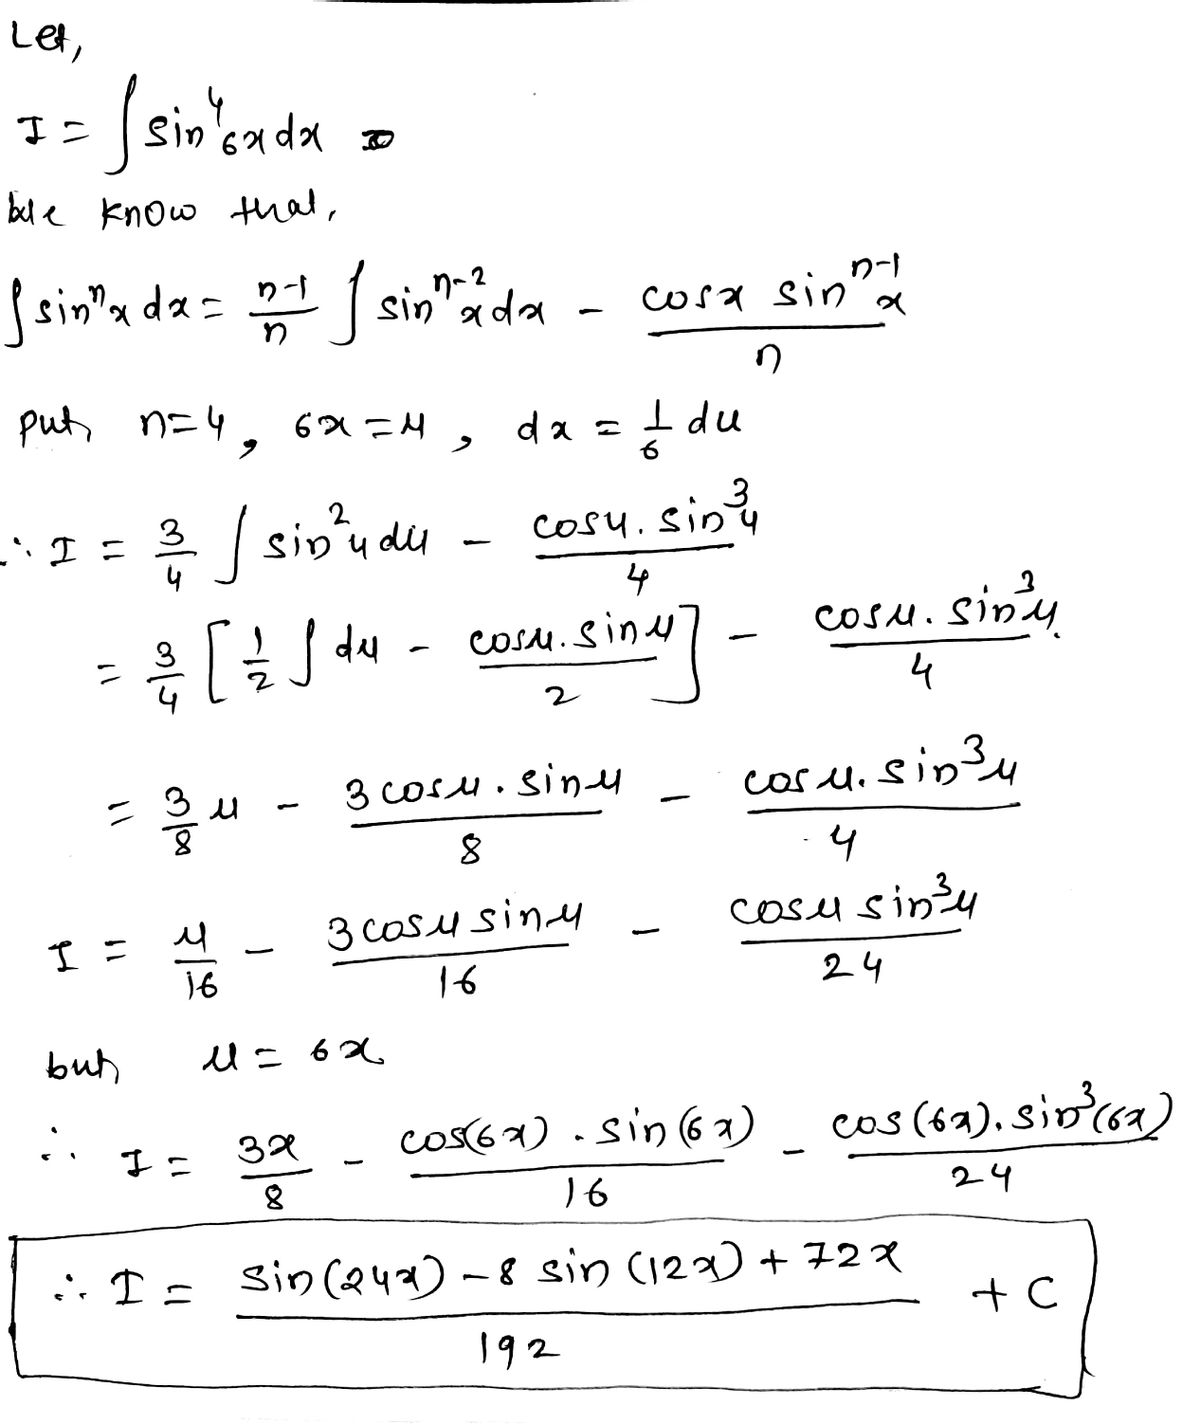 Let,
I = ∫ sin⁴6x dx
We know that,
∫ sinⁿx dx = n-1/n ∫ sinⁿ⁻²x dx - cosx sinⁿ⁻¹x/n
put, n=4, 6x=u, dx = 1/6 du
∴ I = 3/4 ∫ sin²u du - cosu. sin³u/4
= 3/4 [ 1/2 ∫ du - cosu. sinu/2 ] - cosu. sin³u/4
= 3/8 u - 3cosu. sinu/8 - cosu. sin³u/4
I = u/16 - 3cosu sinu/16 - cosu sin³u/24
but, u = 6x
∴ I = 3x/8 - cos(6x). sin(6x)/16 - cos(6x). sin³(6x)/24
∴ I = sin(24x) - 8 sin(12x) + 72x/192 + C